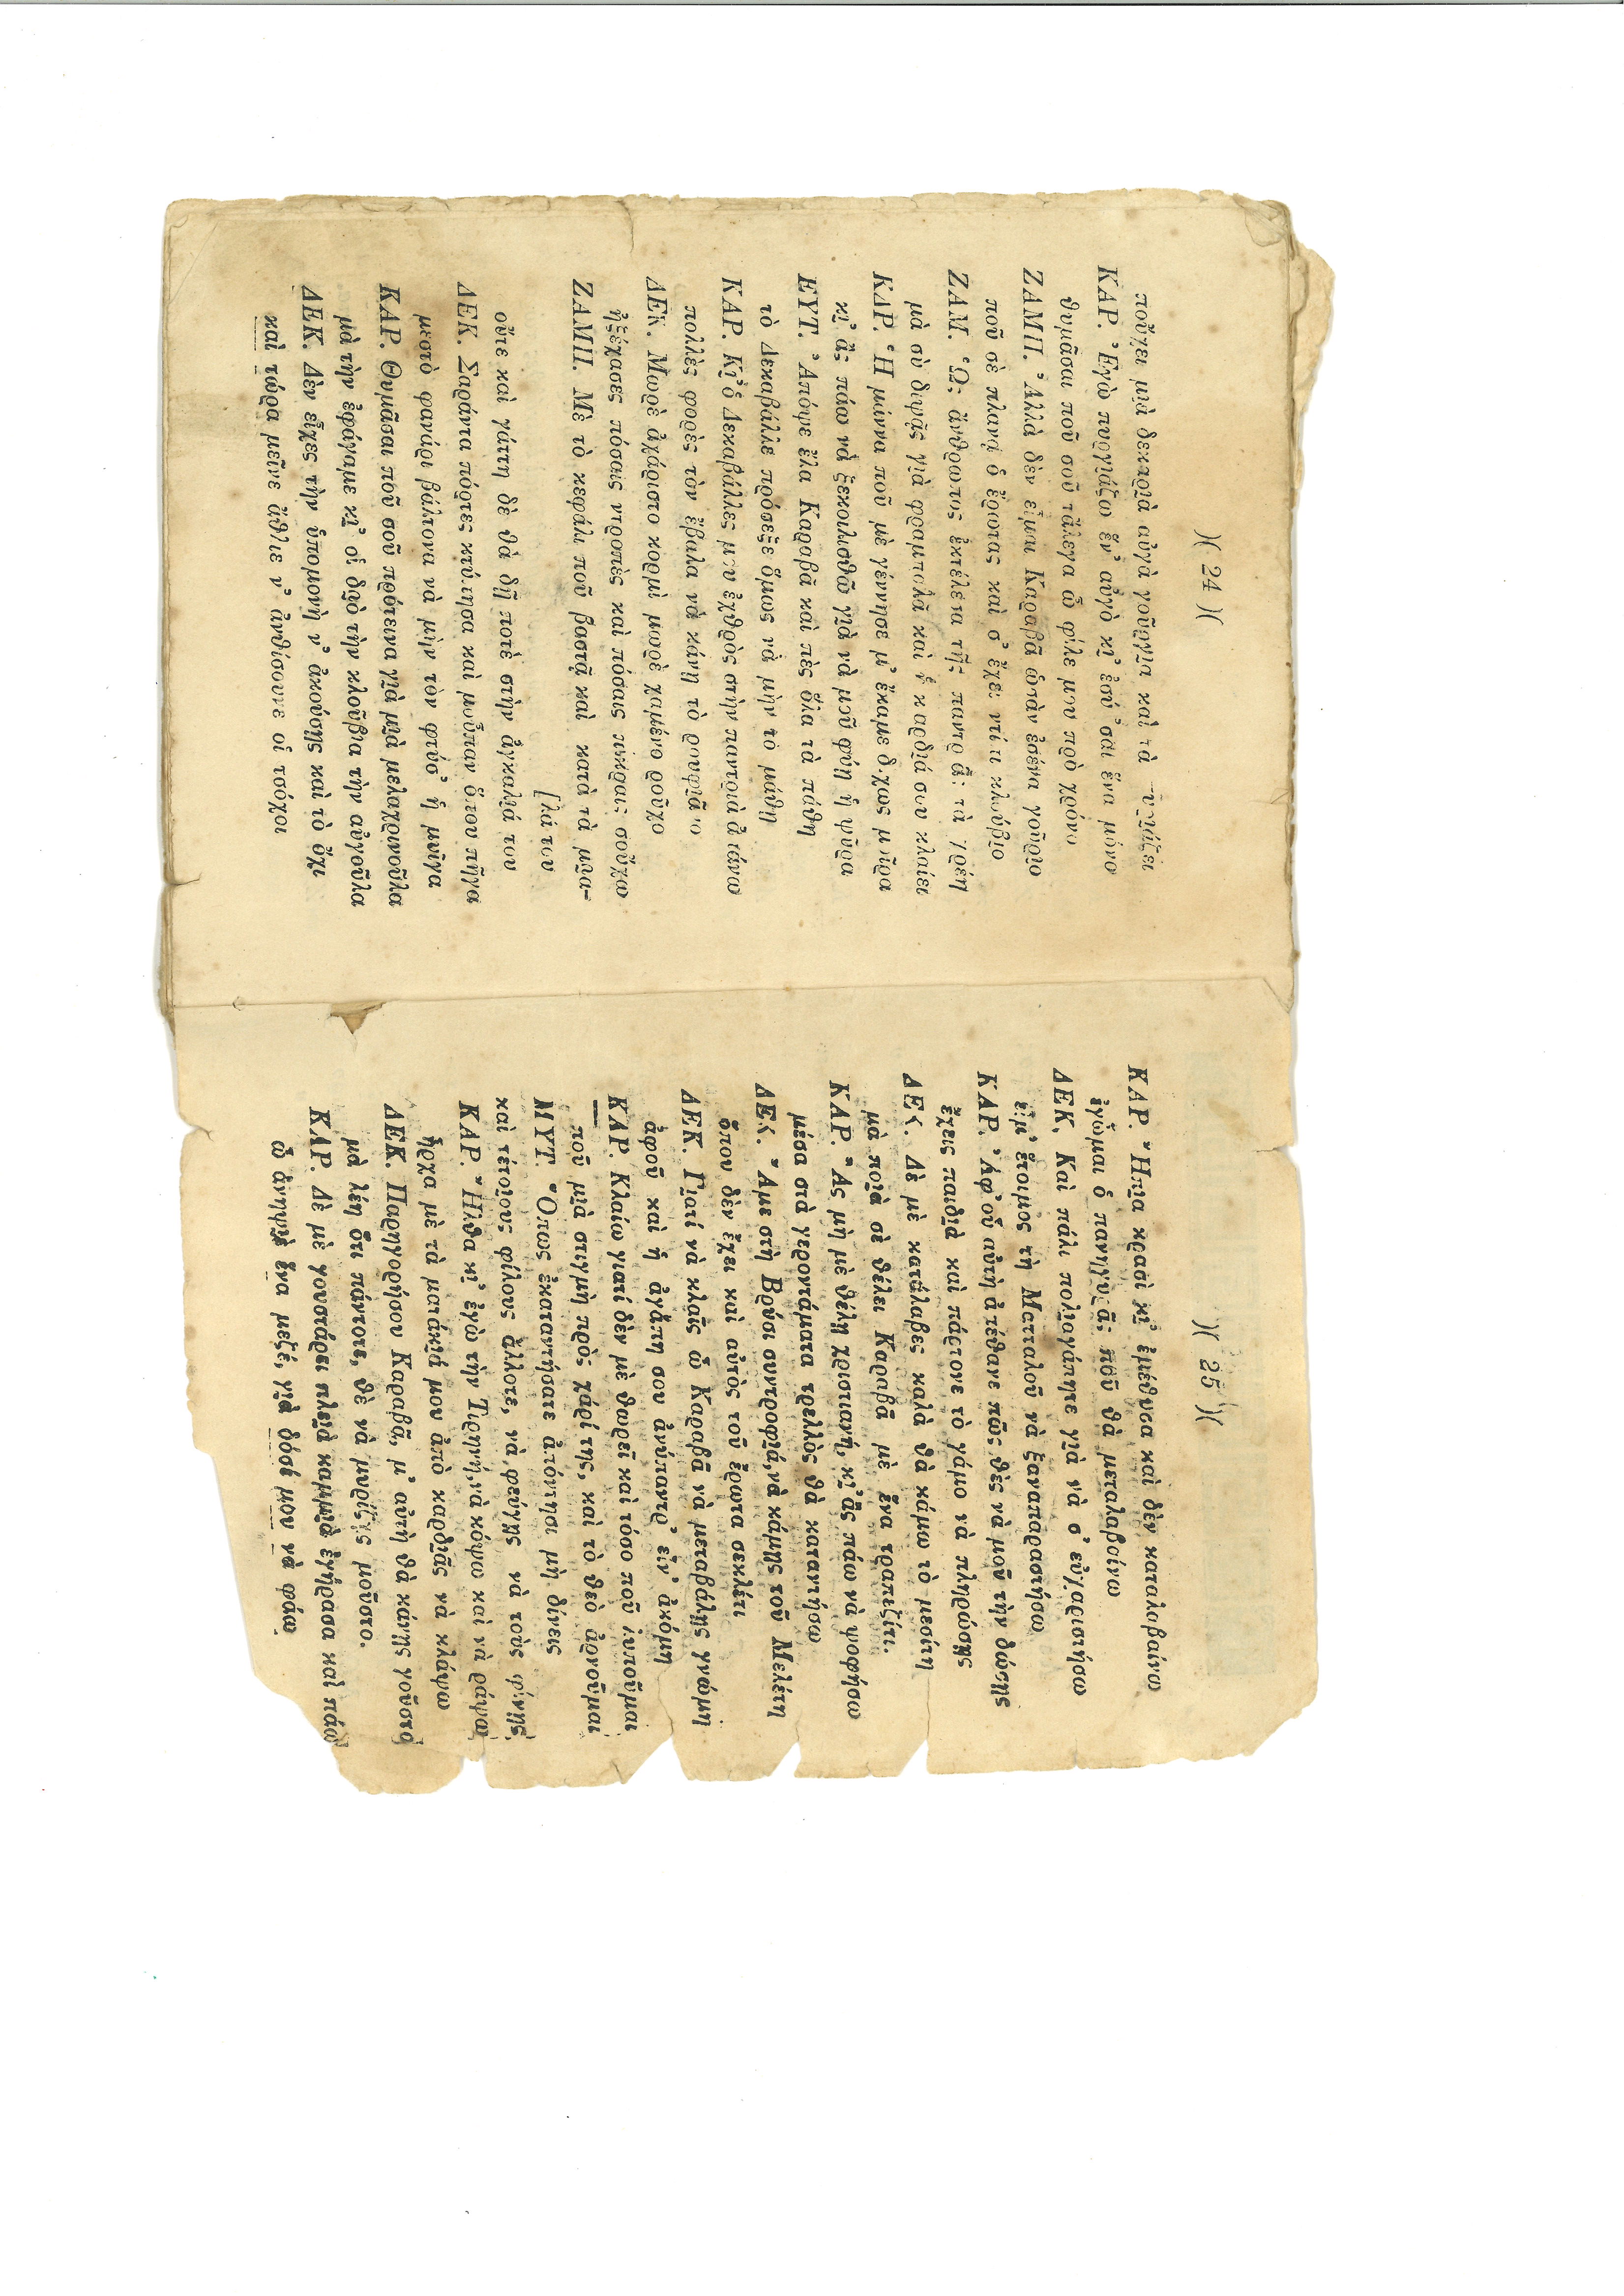 )( 24 )(
ποὖχει μιὰ δεκαριὰ αὐγὰ γοῦργια καὶ τὰ
ΚΑΡ. Ἐγὼ πυργιάζω ἕν᾽ αὐγὸ κι᾽ ἐσύ ᾽σαι ἕνα μόνο
θυμᾶσαι ποῦ σοῦ τἄλεγα ὦ φίλε μου πρὸ χρόνου
ΖΑΜΠ. Ἀλλὰ δὲν εἶμαι Καραβᾶ ὡσὰν ἐσένα γούργιο
ποῦ σὲ πλανᾷ ὁ ἔρωτας καὶ σ᾽ ἔχει κλούβιο
ΖΑΜ. Ὡς ἄνθρωπος ἐκτέλεσα τῆς παντρᾶς τὰ χρέη
μὰ σὺ διψᾷς γιὰ φραμπαλᾶ καὶ ἡ καρδιά σου κλαίει
ΚΑΡ. Ἡ μάννα ποῦ μὲ γέννησε μ᾽ ἔκαμε δίχως μοῖρα
κι᾽ ἂς πάω νὰ ξεκοιλισθῶ γιὰ νὰ μοῦ φύγῃ ἡ ψύρα
ΕΥΤ. Ἀπόψε ἔλα Καραβᾶ καὶ πὲς ὅλα τὰ πάθη
τὸ Δεκαβάλλε πρόσεξε ὅμως νὰ μὴν τὸ μάθῃ
ΚΑΡ. Κι᾽ ὁ Δεκαβάλλες μου ἐχθρὸς στὴν παντριὰ ἀπάνω
πολλὲς φορὲς τὸν ἔβαλα νὰ κάνῃ τὸ ρουφιᾶνο
ΔΕΚ. Μωρὲ ἀχάριστο κορμὶ μωρὲ χαμένο ροῦχο
ἠξέχασες πόσαις ντροπὲς καὶ πόσαις πίκραις σοὖχω
ΖΑΜΠ. Μὲ τὸ κεφάλι ποῦ βαστᾷ καὶ κατὰ τὰ μυα-
[λά του
οὔτε καὶ γάττη δὲ θὰ δῇ ποτὲ στὴν ἀγκαλιά του
ΔΕΚ. Σαράντα πόρτες κτύπησα καὶ μοὖπαν ὅπου πῆγα
μεστὸ φανάρι βάλτονα νὰ μὴν τὸν φτύσ᾽ ἡ μυῖγα
ΚΑΡ. Θυμᾶσαι ποῦ σοῦ πρότεινα γιὰ μιὰ μελαχρινοῦλα
μὰ τὴν ἐφάγαμε κι᾽ οἱ δυὸ τὴν κλοῦβια τὴν αὐγοῦλα
ΔΕΚ. Δὲν εἶχες τὴν ὑπομονὴ ν᾽ ἀκούσῃς καὶ τὸ ὄχι
καὶ τώρα μεῖνε ἄθλιε ν᾽ ἀνθίσουνε οἱ τσόχοι
)( 25 )(
ΚΑΡ. Ἤπια κρασὶ κι᾽ ἐμέθυσα καὶ δὲν καταλαβαίνω
ἐγὦμαι ὁ πανηγυρᾶς ποῦ θὰ μεταλαβαίνω
ΔΕΚ. Καὶ πάλι πολιαγάπητε γιὰ νὰ σ᾽ εὐχαριστήσω
εἶμ᾽ ἕτοιμος τὴ Ματταλοῦ νὰ ξαναπαραστήσω
ΚΑΡ. Ἀφ᾽ οὗ αὐτὴ ἀπέθανε πῶς θὲς νὰ μοῦ τὴν δώσῃς
ἔχεις παιδιὰ καὶ πάρτονε τὸ γάμο νὰ πληρώσῃς
ΔΕΚ. Δὲ μὲ κατάλαβες καλὰ θὰ κάμω τὸ μεσίτη
μὰ ποιὰ σὲ θέλει Καραβᾶ μὲ ἕνα τραπεζίτι.
ΚΑΡ. Ἂς μὴ μὲ θέλῃ χριστιανή, κι᾽ ἂς πάω νὰ ψοφήσω
μέσα στὰ γεροντάματα τρελλὸς θὰ καταντήσω
ΔΕΚ. Ἄμε στὴ Βρύσι συντροφιά, νὰ κάμῃς τοῦ Μελέτη
ὅπου δὲν ἔχει καὶ αὐτὸς τοῦ ἔρωτα σεκλέτι
ΔΕΚ. Γιατί νὰ κλαῖς ὦ Καραβᾶ νὰ μεταβάλῃς γνώμη
ἀφοῦ καὶ ἡ ἀγάπη σου ἀνύπαντρ᾽ εἶν᾽ ἀκόμη
ΚΑΡ. Κλαίω γιατί δὲν μὲ θωρεῖ καὶ τόσο ποῦ λυποῦμαι
ποῦ μιὰ στιγμὴ πρὸς χάρί της, καὶ τὸ θεὸ ἀρνοῦμαι
ΜΥΤ. Ὅπως ἐκαταντήσατε ἀπόντησι μὴ δίνεις
καὶ τέτοιους φίλους ἄλλοτε, νὰ φεύγῃς νὰ τοὺς φίνῃς
ΚΑΡ. Ἦλθα κι᾽ ἐγὼ τὴν Τιρηνή, νὰ κόψω καὶ νὰ ράψω
ἦρχα μὲ τὰ ματάκιά μου ἀπὸ καρδιᾶς νὰ κλάψω
ΔΕΚ. Παρηγορήσου Καραβᾶ, μ᾽ αὐτὴ θὰ κάνῃς γοῦστο
μὰ λέῃ ὅτι πάντοτε, θὲ νὰ μυρίζῃς μοῦστο.
ΚΑΡ. Δὲ μὲ γουστάρει πλειὰ καμμιὰ ἐγήρασα καὶ πάω
ὦ ἀνηψιὲ ἕνα μεζέ, γιὰ δόσ μου νὰ φάω